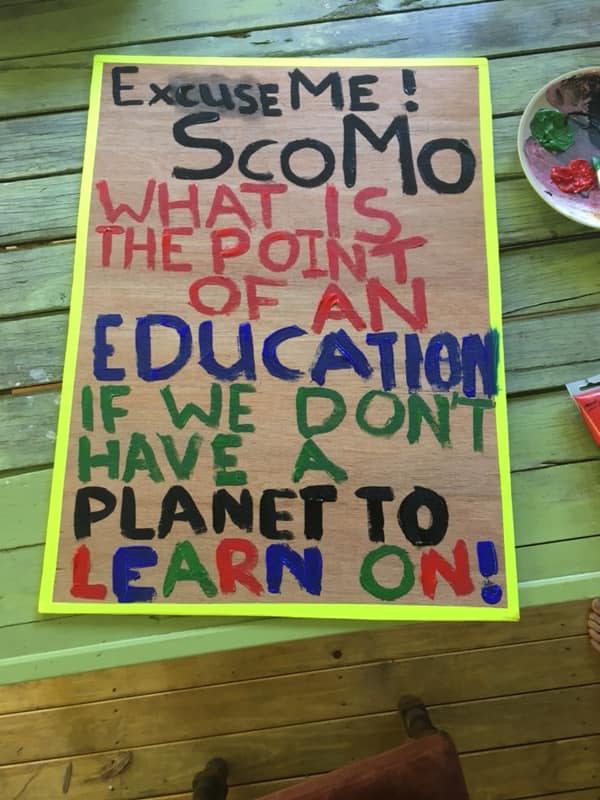 Excuse ME!
ScoMo
WHAT IS
THE POINT
OF AN
EDUCATION
IF WE DON'T
HAVE A
PLANET TO
LEARN ON!